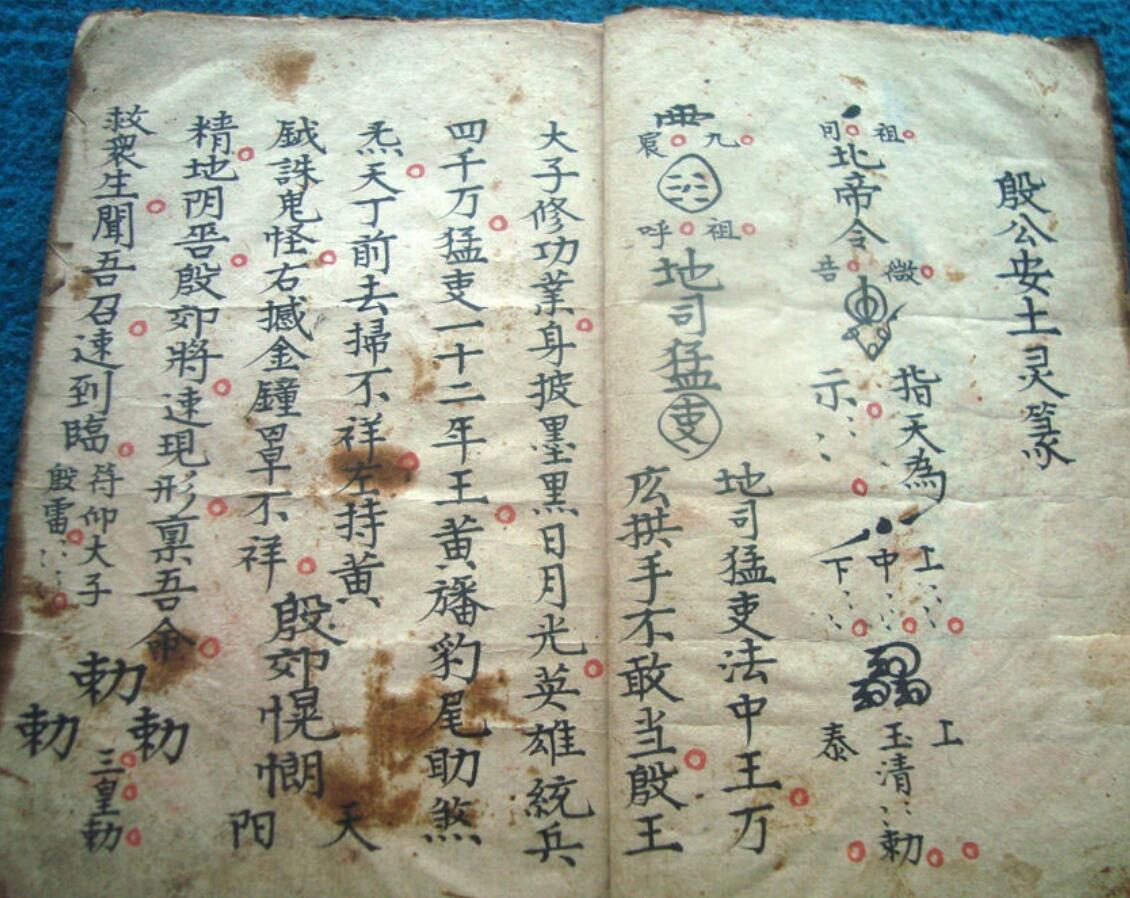 殷公安土灵篆
祖
司
北帝令
微
吉
指天為
示
上
中
下
上
玉清
泰
勅
九
宸
祖
呼
地司猛吏
地司猛吏法中王万
広拱手不敢当殷王
大子修功業身披墨黒日月光英雄統兵
四千万猛吏一十二年王黄旛豹尾助煞
炁天丁前去掃不祥左持黄
天
鉞誅鬼怪右撼金鐘罩不祥
殷郊愰惘
阳
精地阴吾殷郊將速現形禀吾命
救衆生聞吾召速到臨
符仰大子
殷雷
勅
勅
勅
三皇勅